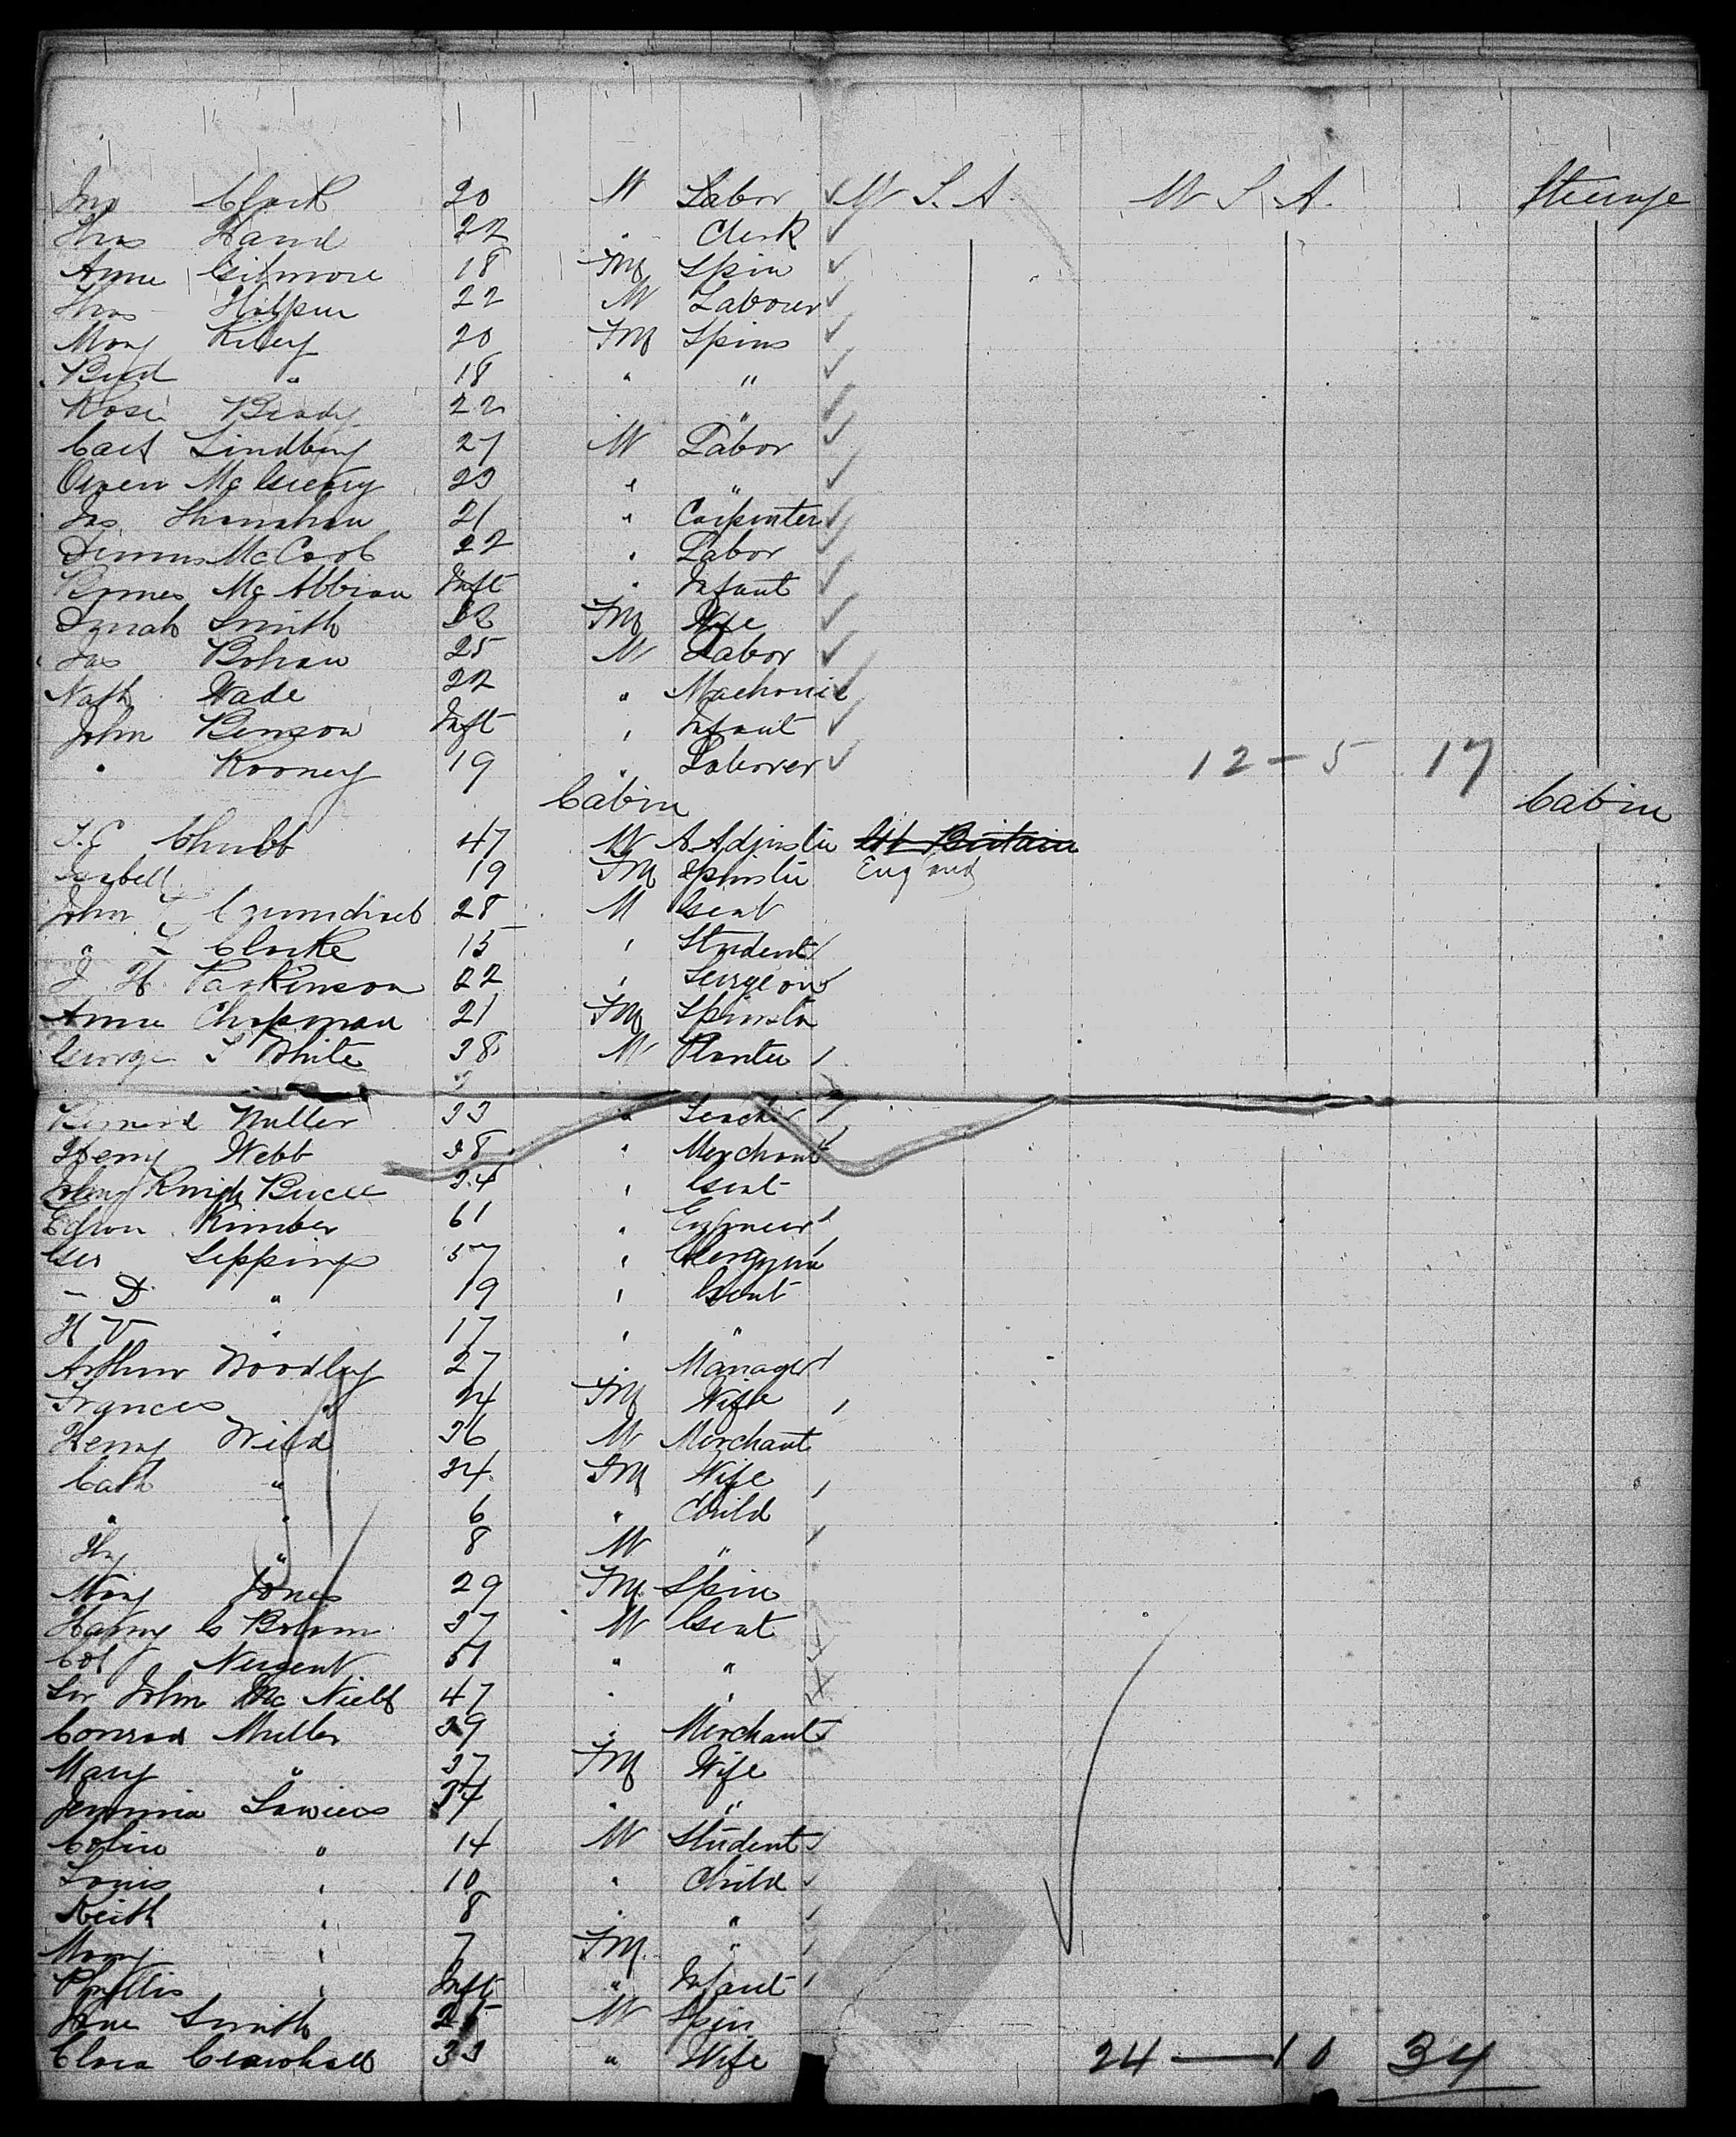 Jno Clark 20 M Labor ✓ U S. A. U S A. Steerage
Thos Hand 22 " Clerk ✓
Anne Gilmore 18 Fm Spin ✓
Thos Halpin 22 M Labourer ✓
Mary Riley 20 Fm Spins ✓
Brid " 18 " " ✓
Rose Brady 22 " " ✓
Carl Lindberg 27 M Labor ✓
Owen 23 " " ✓
Jas Shanahan 21 " Carpenter ✓
McCool 22 " Labor ✓
Inft " Infant ✓
Smith Fm Wife ✓
Jas Bohan 25 M Labor ✓
Nath Wade 22 " Machonic ✓
John Benson Inft " Infant ✓
" Rooney 19 " Laborer ✓ 12 - 5 17
Cabin Cabin
T. E Chubb 47 M A. Adjuster Gt Britain
Isabell 19 Fm Spinster England
John 28 M Gent
" Clarke 15 " Student
J. H. Parkinson 22 " Surgeon
Anne Chapman 21 Fm Spinstr
George S White 38 M Planter
Bernard Muller 33 "
Henry Webb 38 " Merchant
Knight Bruce 34 " Gent
Edwin Kimber 61 " Engineer
Geo Seppings 57 " Clergyma
- D " 19 " Gent
H V " 17 " "
Arthur Woodley 27 " Manager
Frances " 24 Fm Wife
Henry Wild 36 M Merchant
Cath " 34 Fm Wife
" " 6 " Child
Hy " 8 M "
Mary Jones 29 Fm Spin
Harry C 37 M Gent
Col Nugent 51 " "
Sir John McNiell 47 " "
Conrad Muller 39 " Merchant
Mary " 37 Fm Wife
Jemima 34 " "
Colin " 14 M Student
Louis " 10 " Child
Keith " 8 " "
Mary " 7 Fm "
Phyllis " Inft " Infant
Jane Smith 25 M Spin
Clara 33 " Wife 24 — 10 34